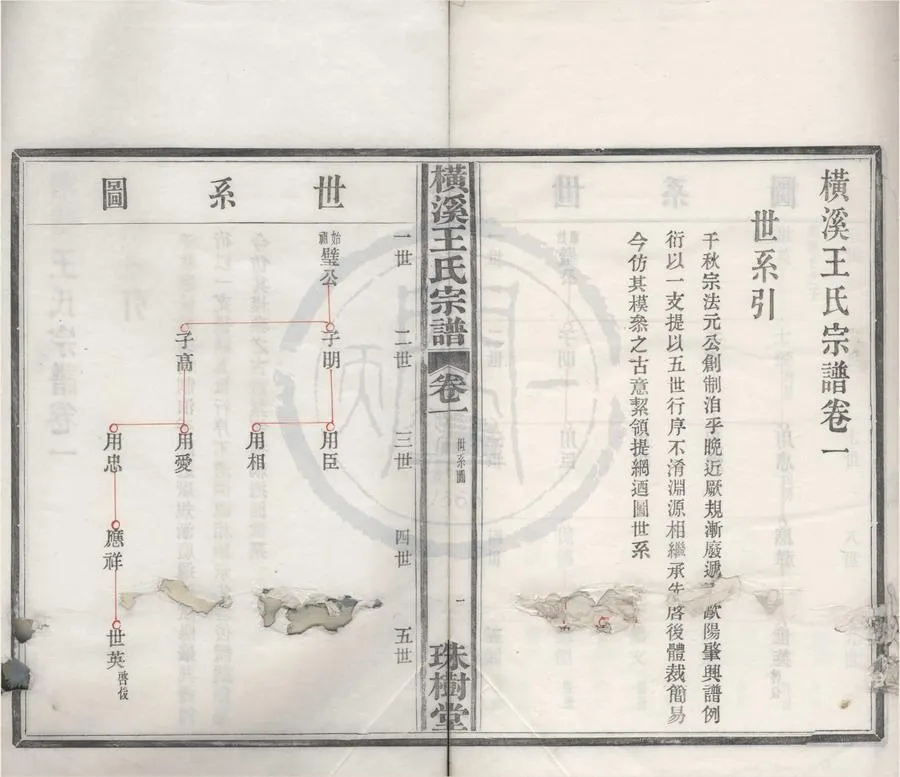 橫溪王氏宗譜卷一
世系引
千秋宗法元公創制洎乎晚近厥規漸廢遞 歐陽肇興譜例
衍以一支提以五世行序不淆淵源相繼承先啓後體裁簡易
今仿其模叅之古意絜領提綱迺圖世系
橫溪王氏宗譜 卷一 世系圖 一 珠樹堂
世系圖
一世
始祖 璧公
二世
子明
子高
三世
用臣
用相
用愛
用忠
四世
應祥
五世
世英 啓俊